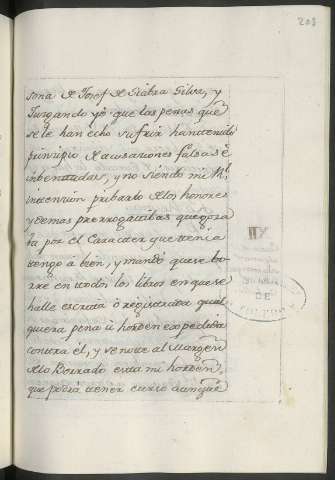 203
sona de Josef de Seabra Silva, y
Jurgando yò que las penas que
se le han echo sufrir han tenido
principio de acusaciones falsas è
imbentadas, y no siendo mi Rl.
intencion pribarlo de los honores
y demas prerrogatibas que goza
ba por el Caracter que tenia
tengo à bien, y mando que se bo
rre en todos los libros en que se
halle escrita ò registrada qual
quiera pena ù horden expedida
contra èl, y se note al Margen
de lo Borrado esta mi horden,
que podrà tener curso aunque
XII
DE